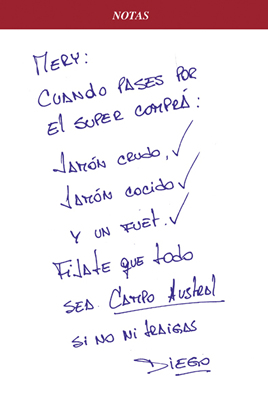 NOTAS
MERY:
CUANDO PASES POR
El SUPER COMPRÁ:
JAMÓN CRUDO,
JAMÓN COCIDO
Y UN FUET.
FIJATE QUE todo
SEA CAMPO AUSTRAL
SI NO NI tRAIGAS
DIEGO